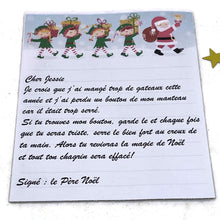 Cher Jessie
Je crois que j'ai mangé trop de gateaux cette
année et j'ai perdu un bouton de mon manteau
car il était trop serré.
Si tu trouves mon bouton, garde le et chaque fois
que tu seras triste, serre le bien fort au creux de
ta main. Alors tu revivras la magie de Noël
et tout ton chagrin sera effacé!
Signé : le Père Noël